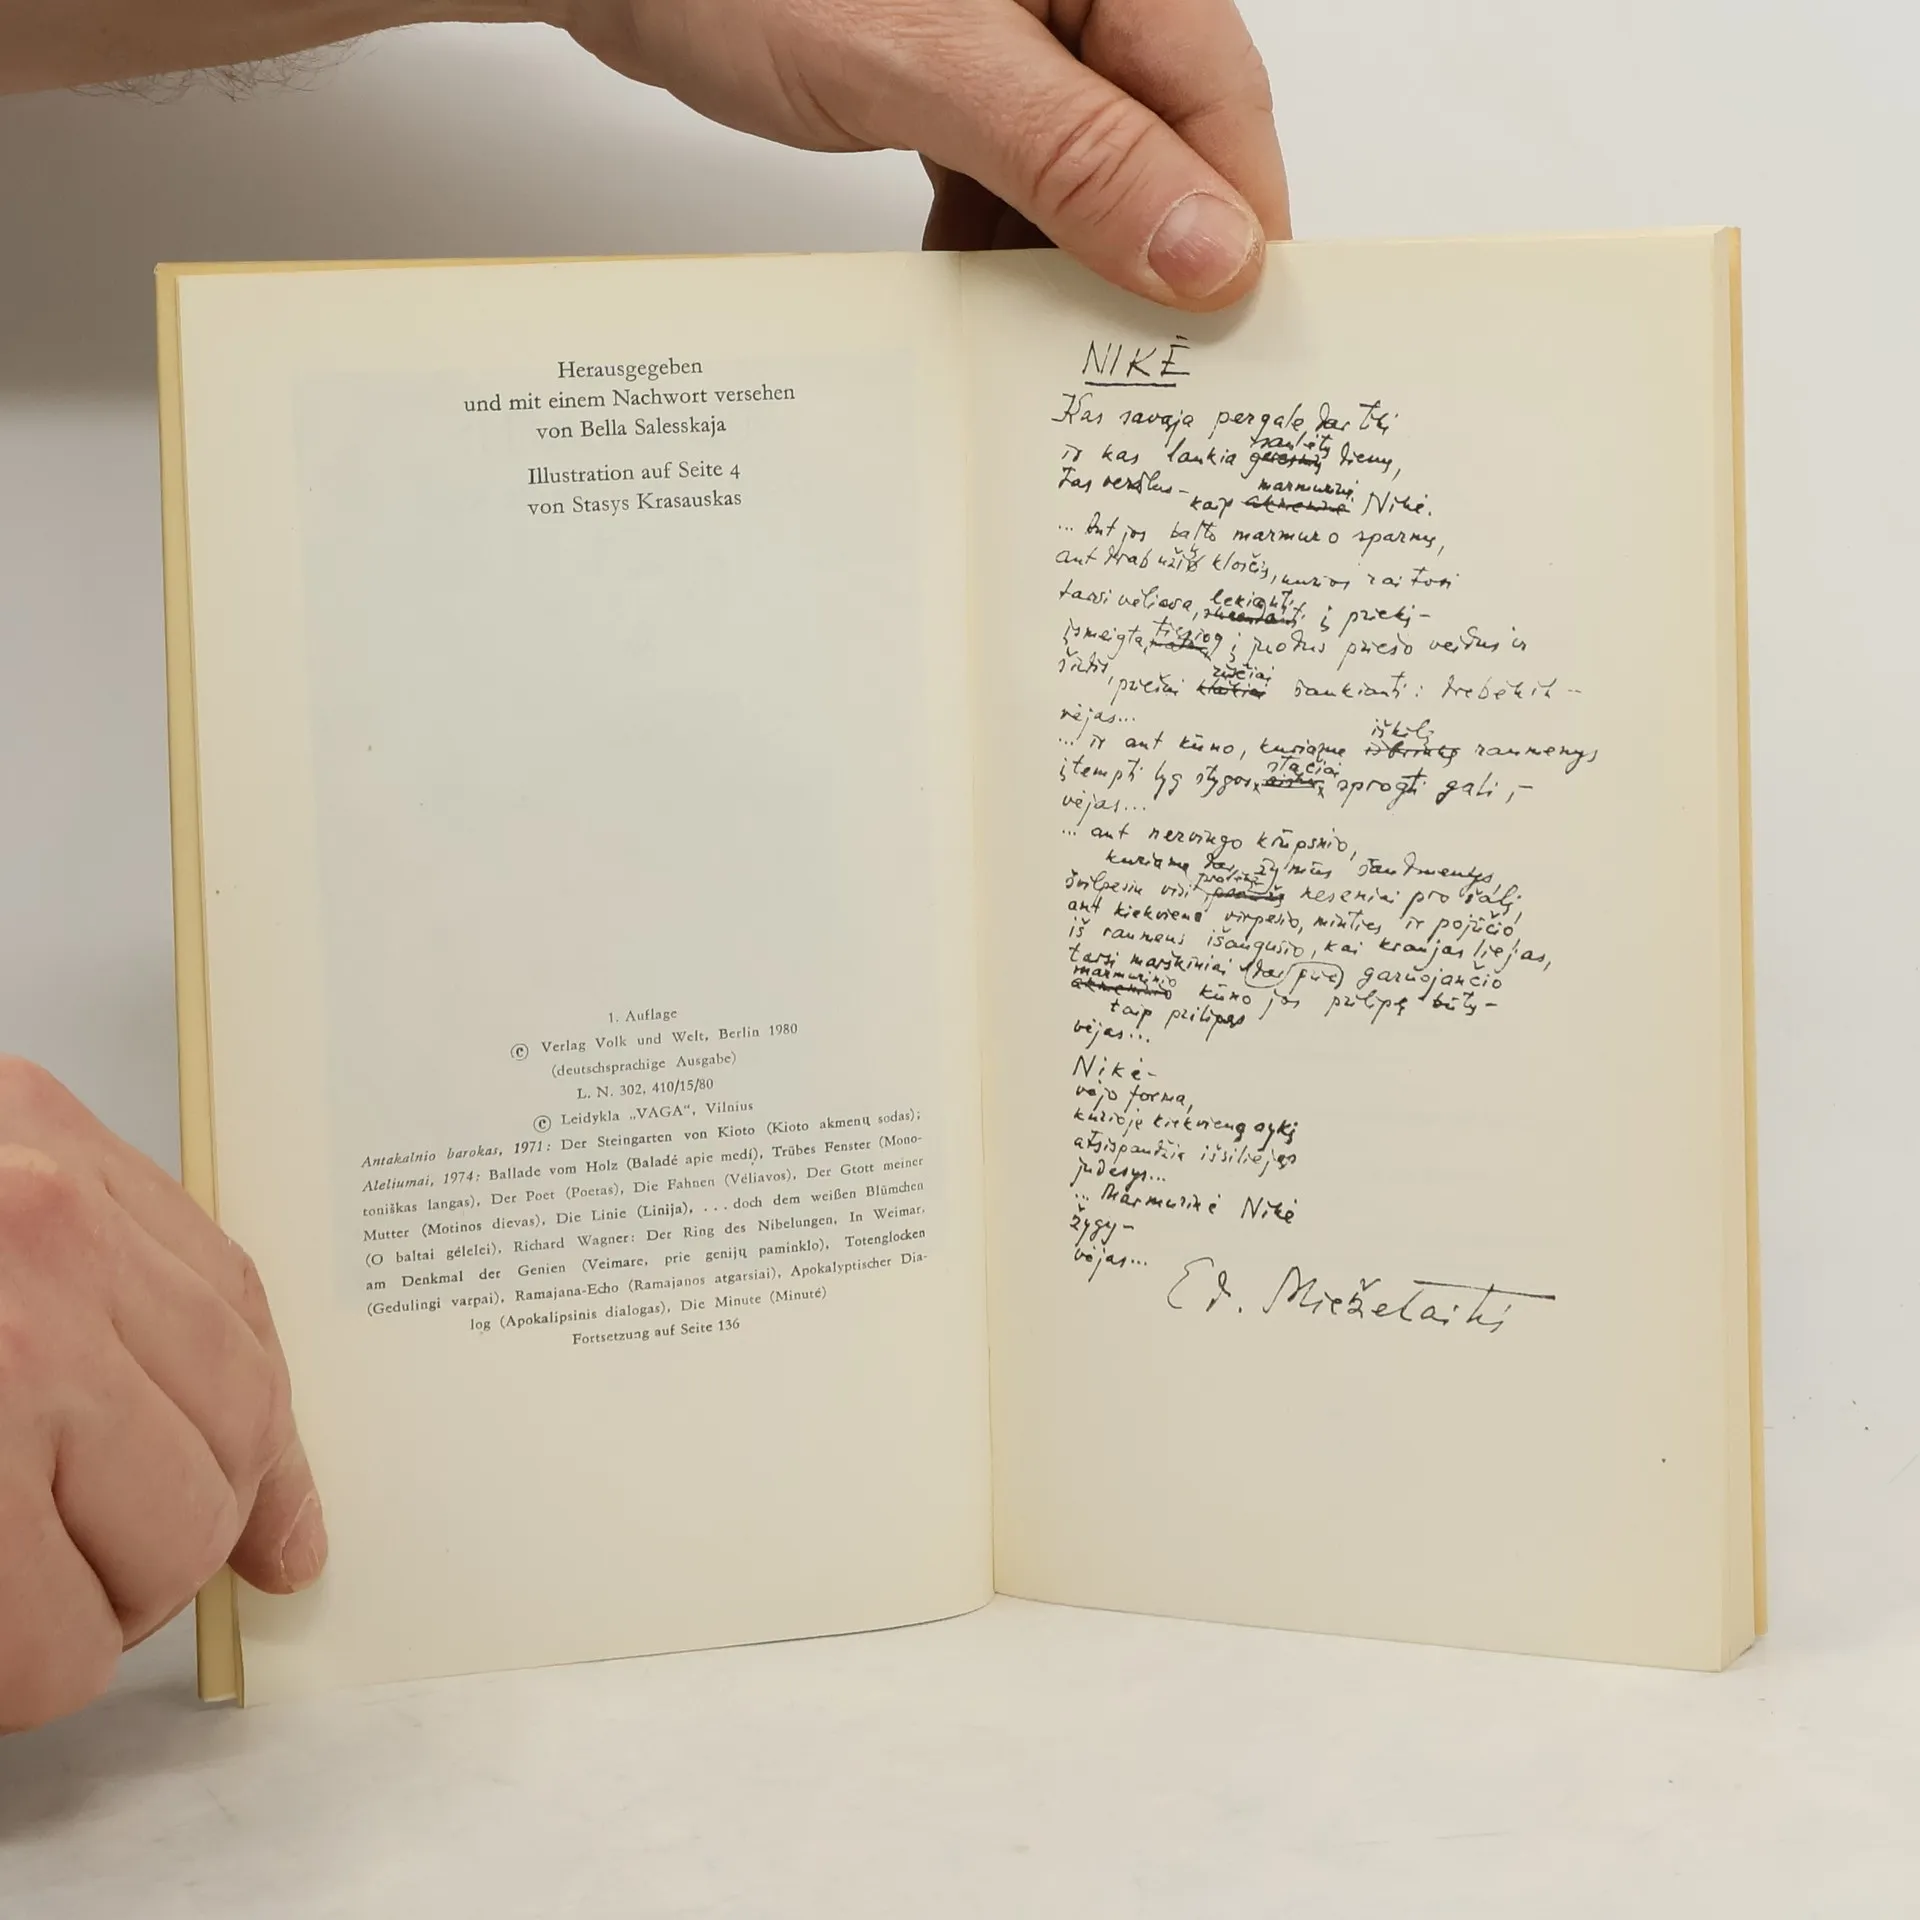 Herausgegeben
und mit einem Nachwort versehen
von Bella Salesskaja
Illustration auf Seite 4
von Stasys Krasauskas
1. Auflage
© Verlag Volk und Welt, Berlin 1980
(deutschsprachige Ausgabe)
L. N. 302, 410/15/80
© Leidykla „VAGA“, Vilnius
Antakalnio barokas, 1971: Der Steingarten von Kioto (Kioto akmenų sodas);
Aleliumai, 1974: Ballade vom Holz (Baladė apie medį), Trübes Fenster (Mono-
toniškas langas), Der Poet (Poetas), Die Fahnen (Vėliavos), Der Gtott meiner
Mutter (Motinos dievas), Die Linie (Linija), ... doch dem weißen Blümchen
(O baltai gėlelei), Richard Wagner: Der Ring des Nibelungen, In Weimar,
am Denkmal der Genien (Veimare, prie genijų paminklo), Totenglocken
(Gedulingi varpai), Ramajana-Echo (Ramajanos atgarsiai), Apokalyptischer Dia-
log (Apokalipsinis dialogas), Die Minute (Minutė)
Fortsetzung auf Seite 136
NIKĖ
Kas savąja pergale dar tiki
saulėtų
ir kas laukia dienų,
marmurinė
kaip akmeninė Nikė.
... Ant jos balto marmuro sparnų,
ant drabužių klosčių, kurios raitosi
lekianti
tarsi vėliava, į priekį –
tiesiog
įsmeigta, į juodus priešo veidus ir
rūsčiai
šaukianti:
vėjas...
iškilę
... ir ant kūno, kuriame raumenys
stačiai
įtempti lyg stygos, sprogti gali, –
vėjas...
... ant nervingo krūpsnio,
kuriame dar žymūs
neseniai pro šalį,
ant kiekvieno virpesio, minties ir pojūčio,
iš raumens išaugusio, kai kraujas liejas,
tarsi marškiniai (dar prie) garuojančio
marmurinio
akmeninio kūno jos prilipę būtų –
taip prilipęs
vėjas...
Nikė –
vėjo forma,
kurioje kiekvieną sykį
atsispaudžia išsiliejęs
judesys...
... Marmurinė Nikė
žygy –
vėjas...
Ed. Mieželaitis